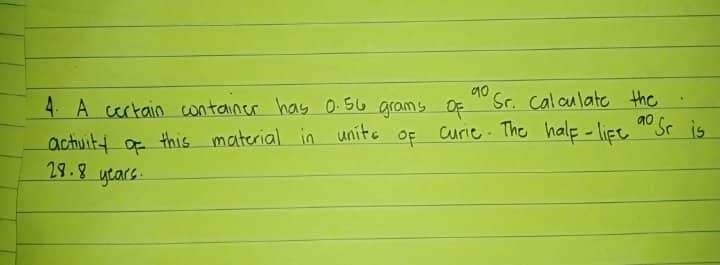 4. A certain container has 0.56 grams of ⁹⁰Sr. Calculate the
activity of this material in units of Curie. The half-life ⁹⁰Sr is
28.8 years.